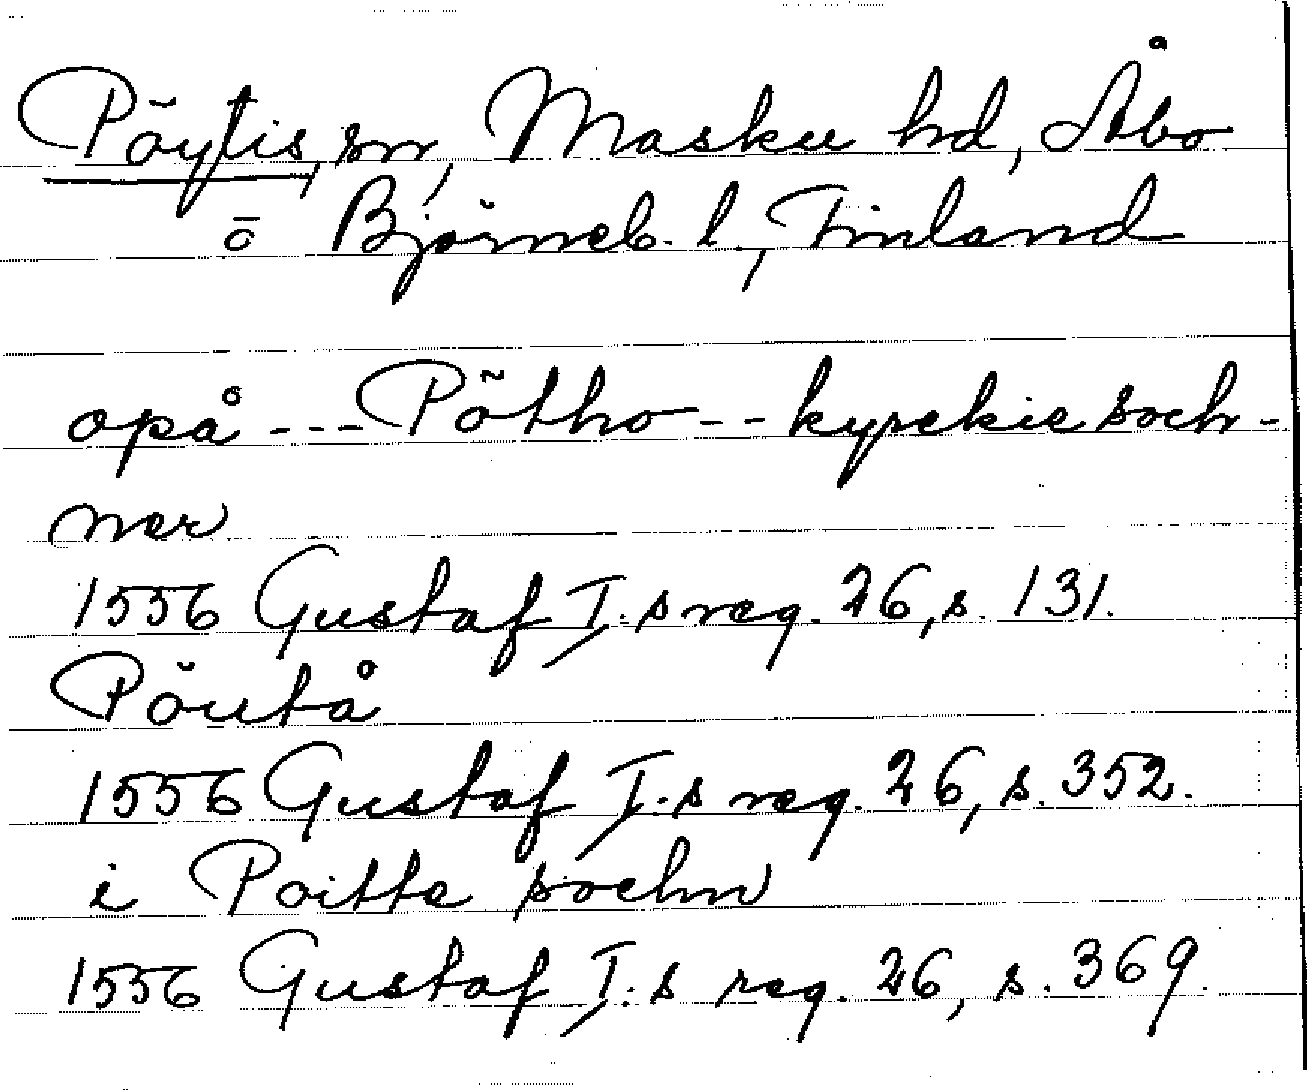 Pöytis, sn, Masku hd, Åbo
o Björneb. l., Finland
opå --- Pötho -- kyrckie soch-
ner
1556 Gustaf I.s reg. 26, s. 131.
Pöutå
1556 Gustaf I.s reg. 26, s. 352.
i Poitte sochn
1556 Gustaf I.s reg. 26, s. 369.